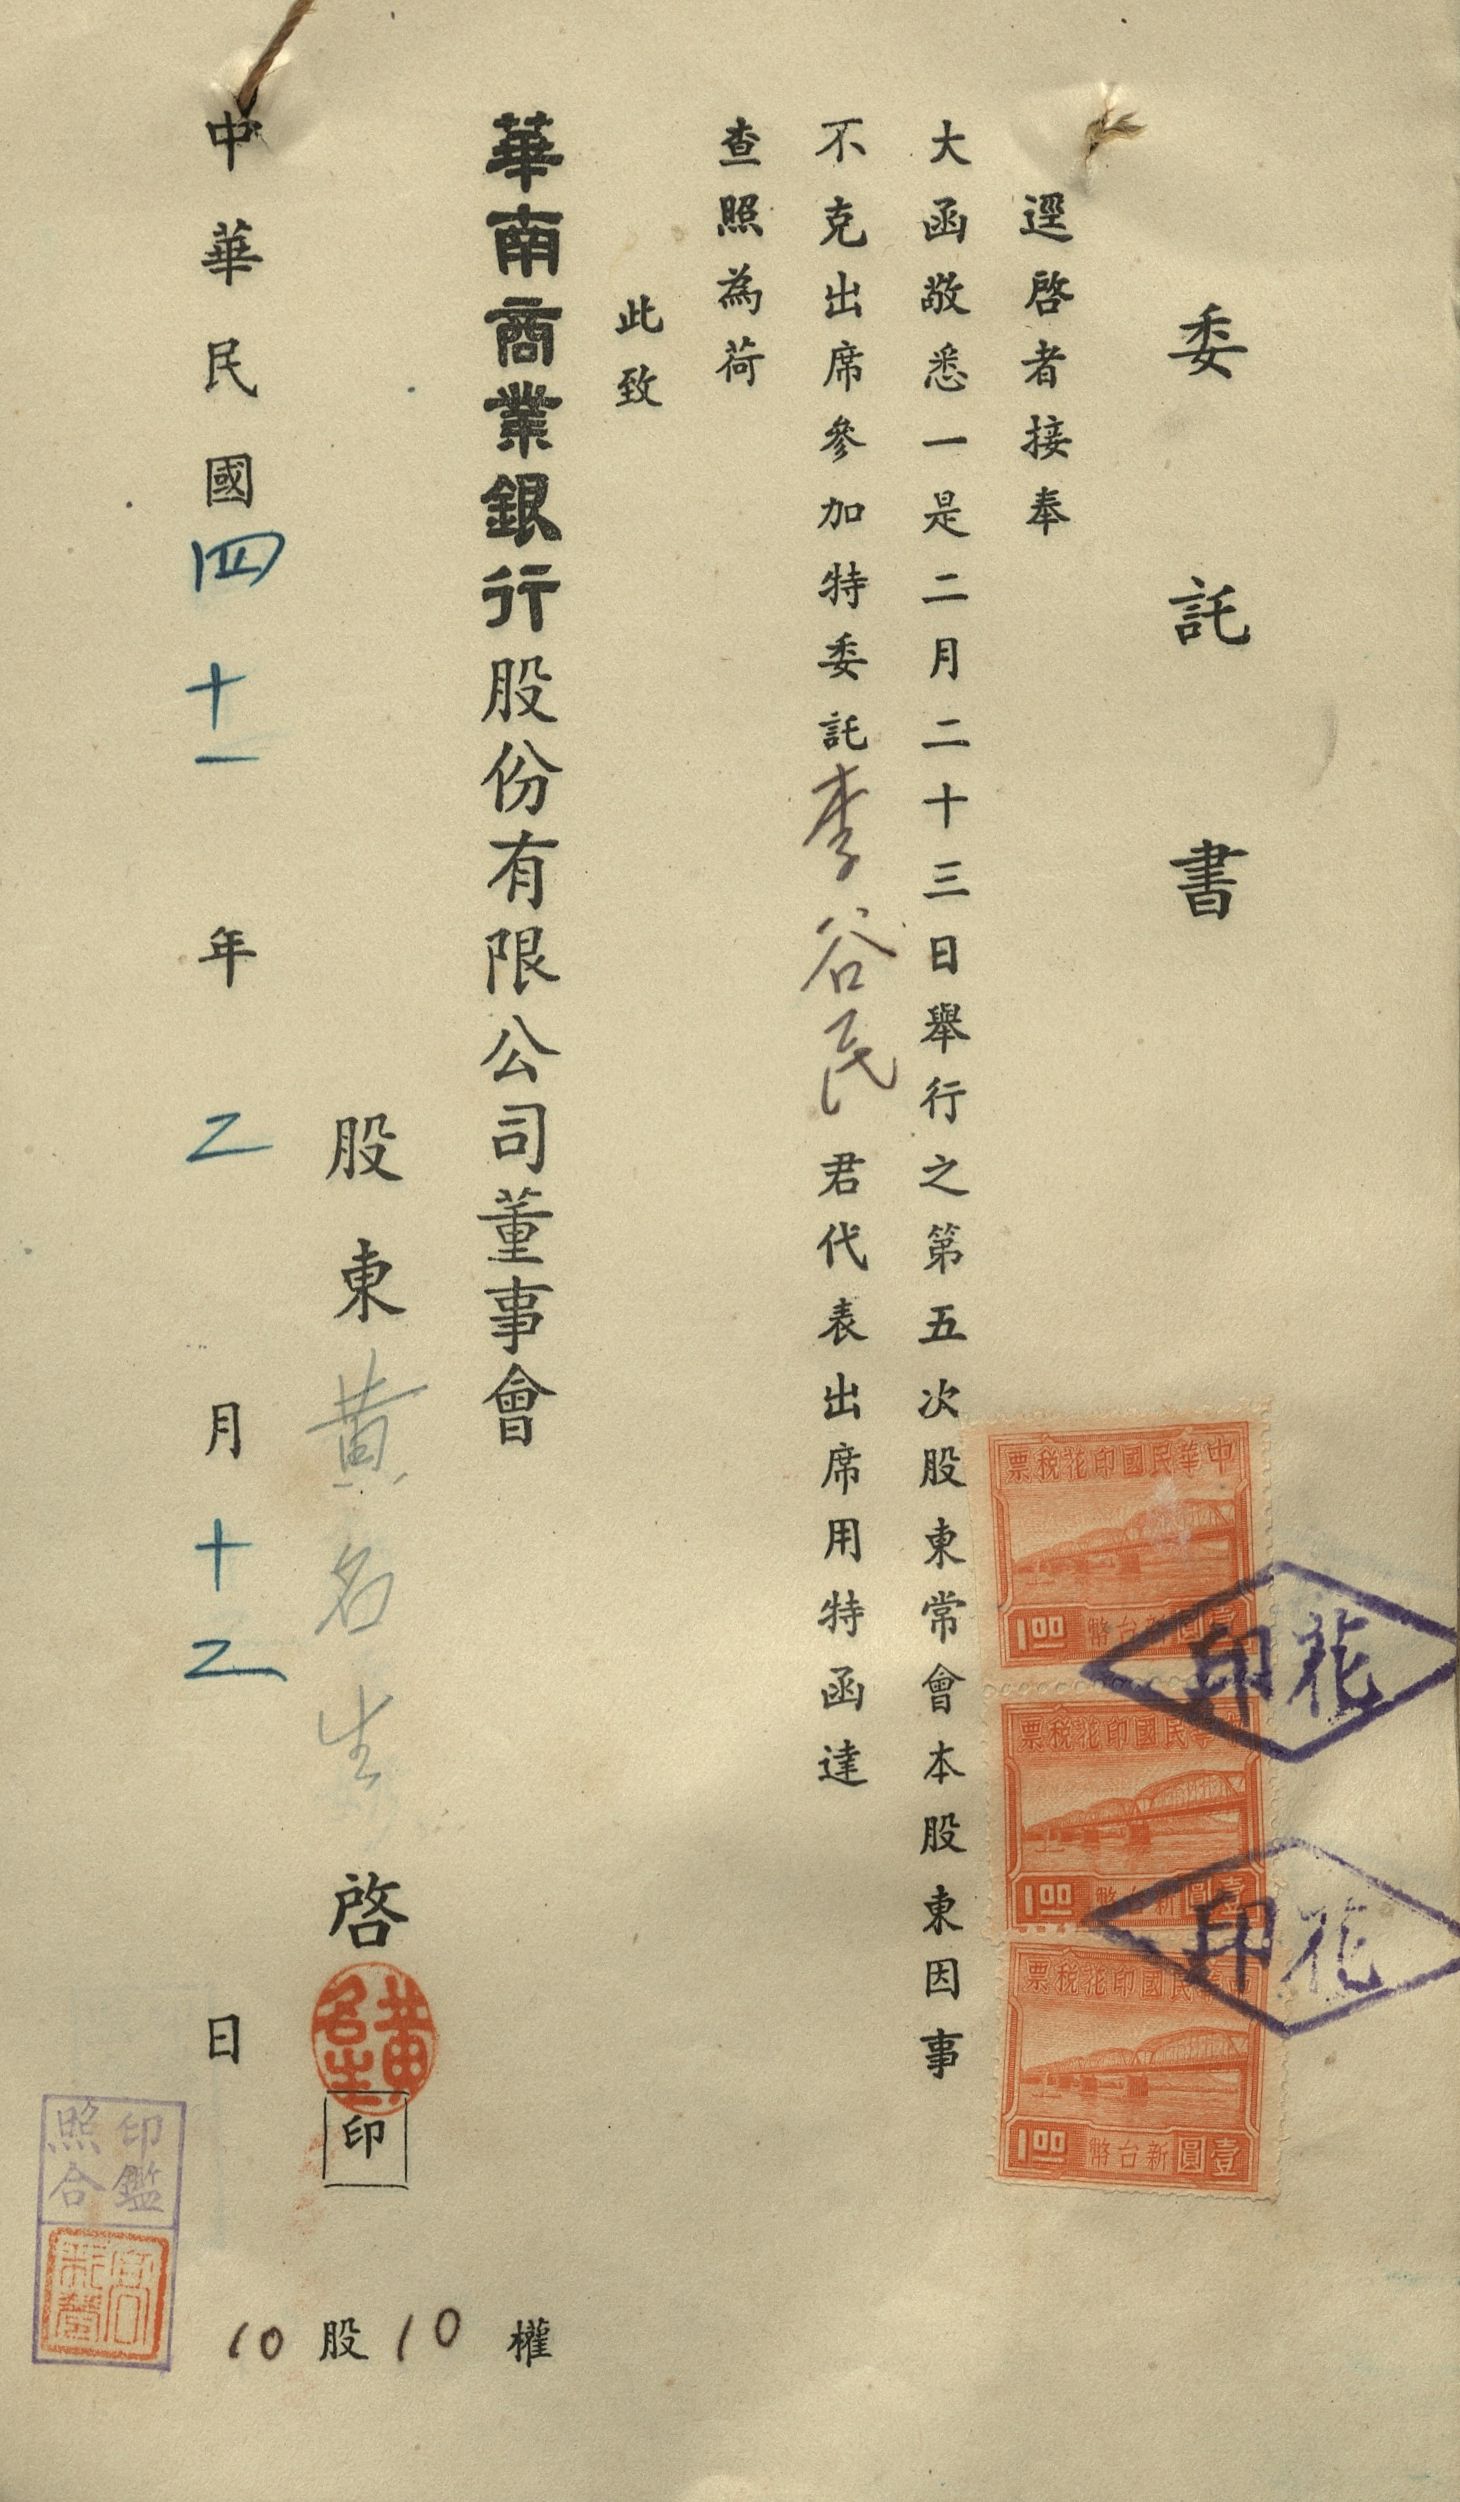 委託書
逕啓者接奉
大函敬悉一是二月二十三日舉行之第五次股東常會本股東因事
不克出席參加特委託李谷民君代表出席用特函達
查照為荷
此致
華南商業銀行股份有限公司董事會
股東黃名生啓
黃名生
印
中華民國四十一年二月十二日
10股10權
中華民國印花稅票
壹圓新台幣1.00
中華民國印花稅票
壹圓新台幣1.00
中華民國印花稅票
壹圓新台幣1.00
印花
印花
印鑑
照合